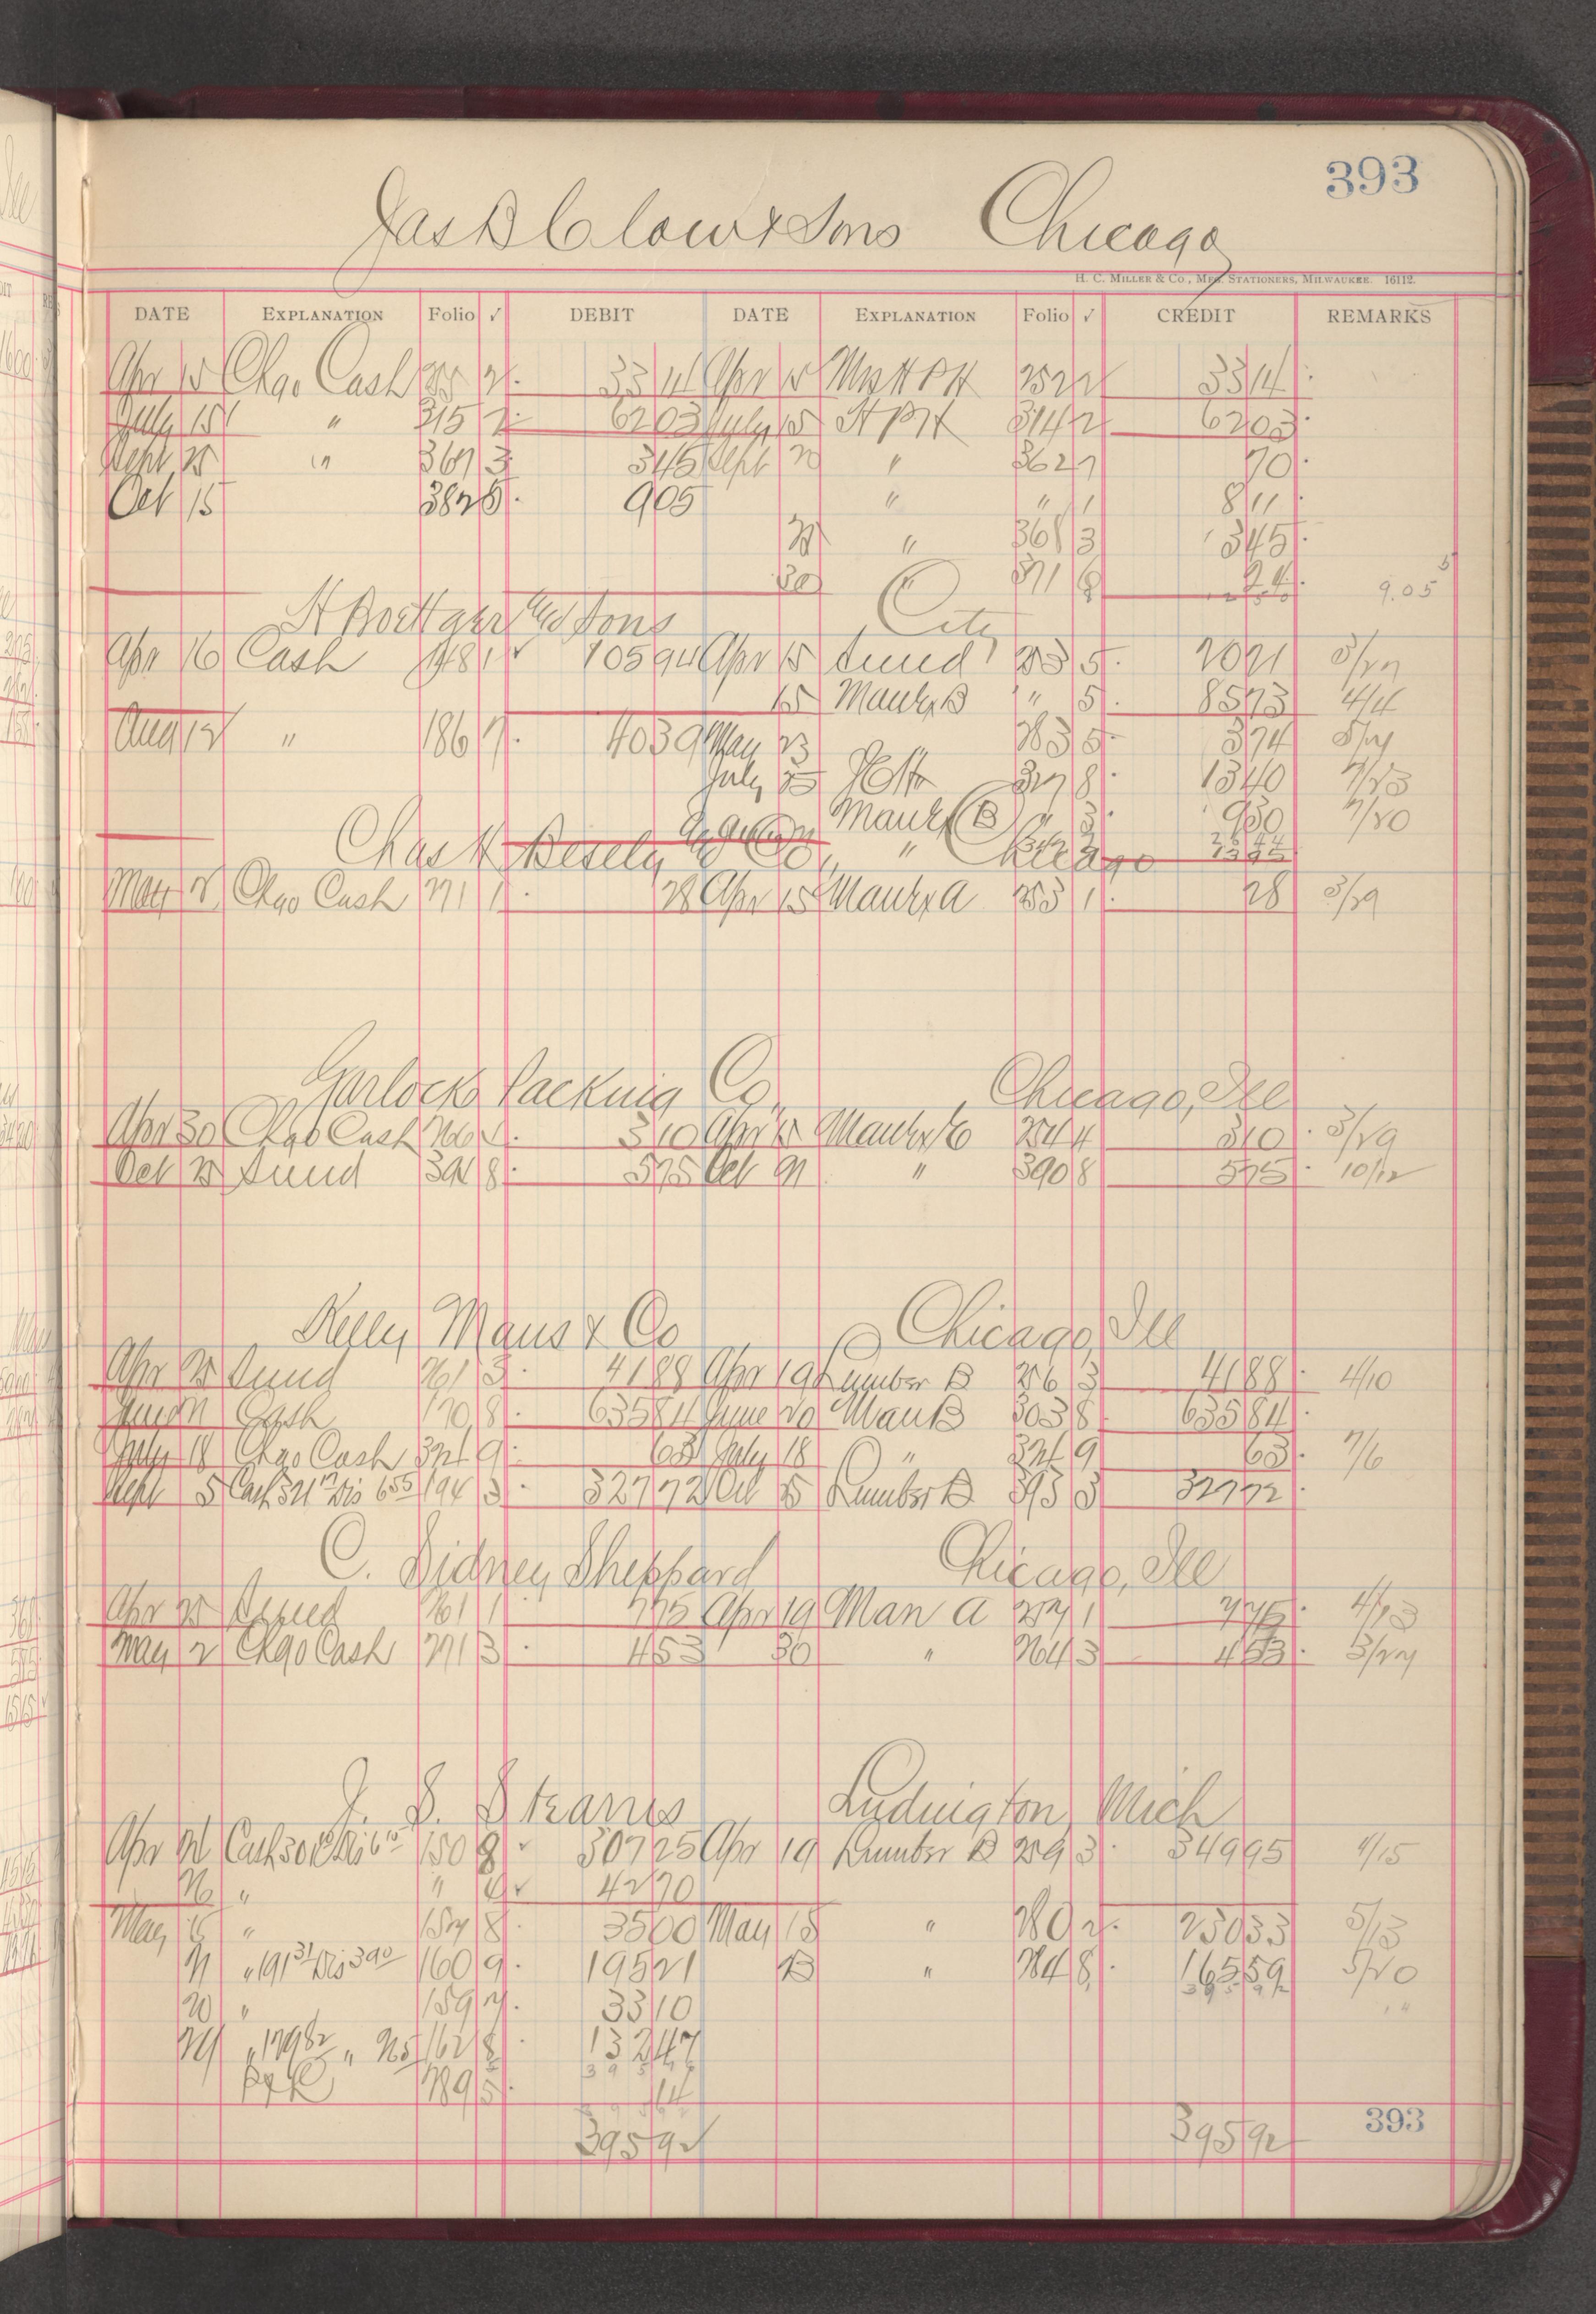 393
Jas B Clow & Sons Chicago
H. C. Miller & Co., Mfg. Stationers, Milwaukee. 16112.
DATE Explanation Folio ✓ DEBIT DATE Explanation Folio ✓ CREDIT REMARKS
Apr 15 Chgo Cash 2 33 14 Apr 15 252 2 33 14
July 15 " 315 2 62 03 July 15 H P H 314 2 62 03
Sept 25 " 367 3 3 45 Sept 20 " 362 7 70
Oct 15 382 5 9 05 " " 1 8 11
" 368 3 3 45
30 " 371 8 24 9.05
H Boettger and Sons City
Apr 16 Cash 148 1 ✓ 105 94 Apr 15 Sund 253 5 20 21 3/27
15 Manfx B " 5 85 73 4/4
Aug 12 " 186 7 40 39 May 23 " 283 5 3 74
July 25 327 8 13 40 7/23
Manfx B " 3 9 30 7/20
" 13 95
Chas H Besely and Co, Chicago
May 2 Chgo Cash 271 1 28 Apr 15 Manfx A 253 1 28 3/29
Garlock Packing Co, Chicago, Ill
Apr 30 Chgo Cash 266 4 3 10 Apr 15 Manfx E 254 4 3 10 3/29
Oct 25 Sund 394 8 5 75 Oct 21 " 390 8 5 75 10/12
Kelly Maus & Co Chicago, Ill
Apr 25 Sund 261 3 41 88 Apr 19 Lumber B 256 3 41 88 4/10
June 21 Cash 170 8 635 84 June 20 Man B 303 8 635 84
July 18 Chgo Cash 321 9 63 July 18 " 321 9 63 7/6
Sept 5 Cash 321 17 Dis 6 55 194 3 327 72 Oct 25 Lumber B 393 3 327 72
C. Sidney Sheppard Chicago, Ill
Apr 25 Sund 261 1 7 75 Apr 19 Man A 257 1 7 75 4/13
May 2 Chgo Cash 271 3 4 53 30 " 264 3 4 53 3/27
J. S. Stearns Ludington, Mich
Apr 21 Cash 301 10 Dis 6 15 150 8 ✓ 307 25 Apr 19 Lumber B 259 3 349 95 4/15
26 " " 4 ✓ 42 70
May 6 " 157 8 35 00 May 18 " 280 2 230 33 5/13
" 191 31 Dis 3 90 160 9 195 21 23 " 284 8 165 59 5/20
20 " 159 7 33 10 395 92
29 " 129 82 " 2 65 162 8 132 47
289 5 14
395 92 395 92
393